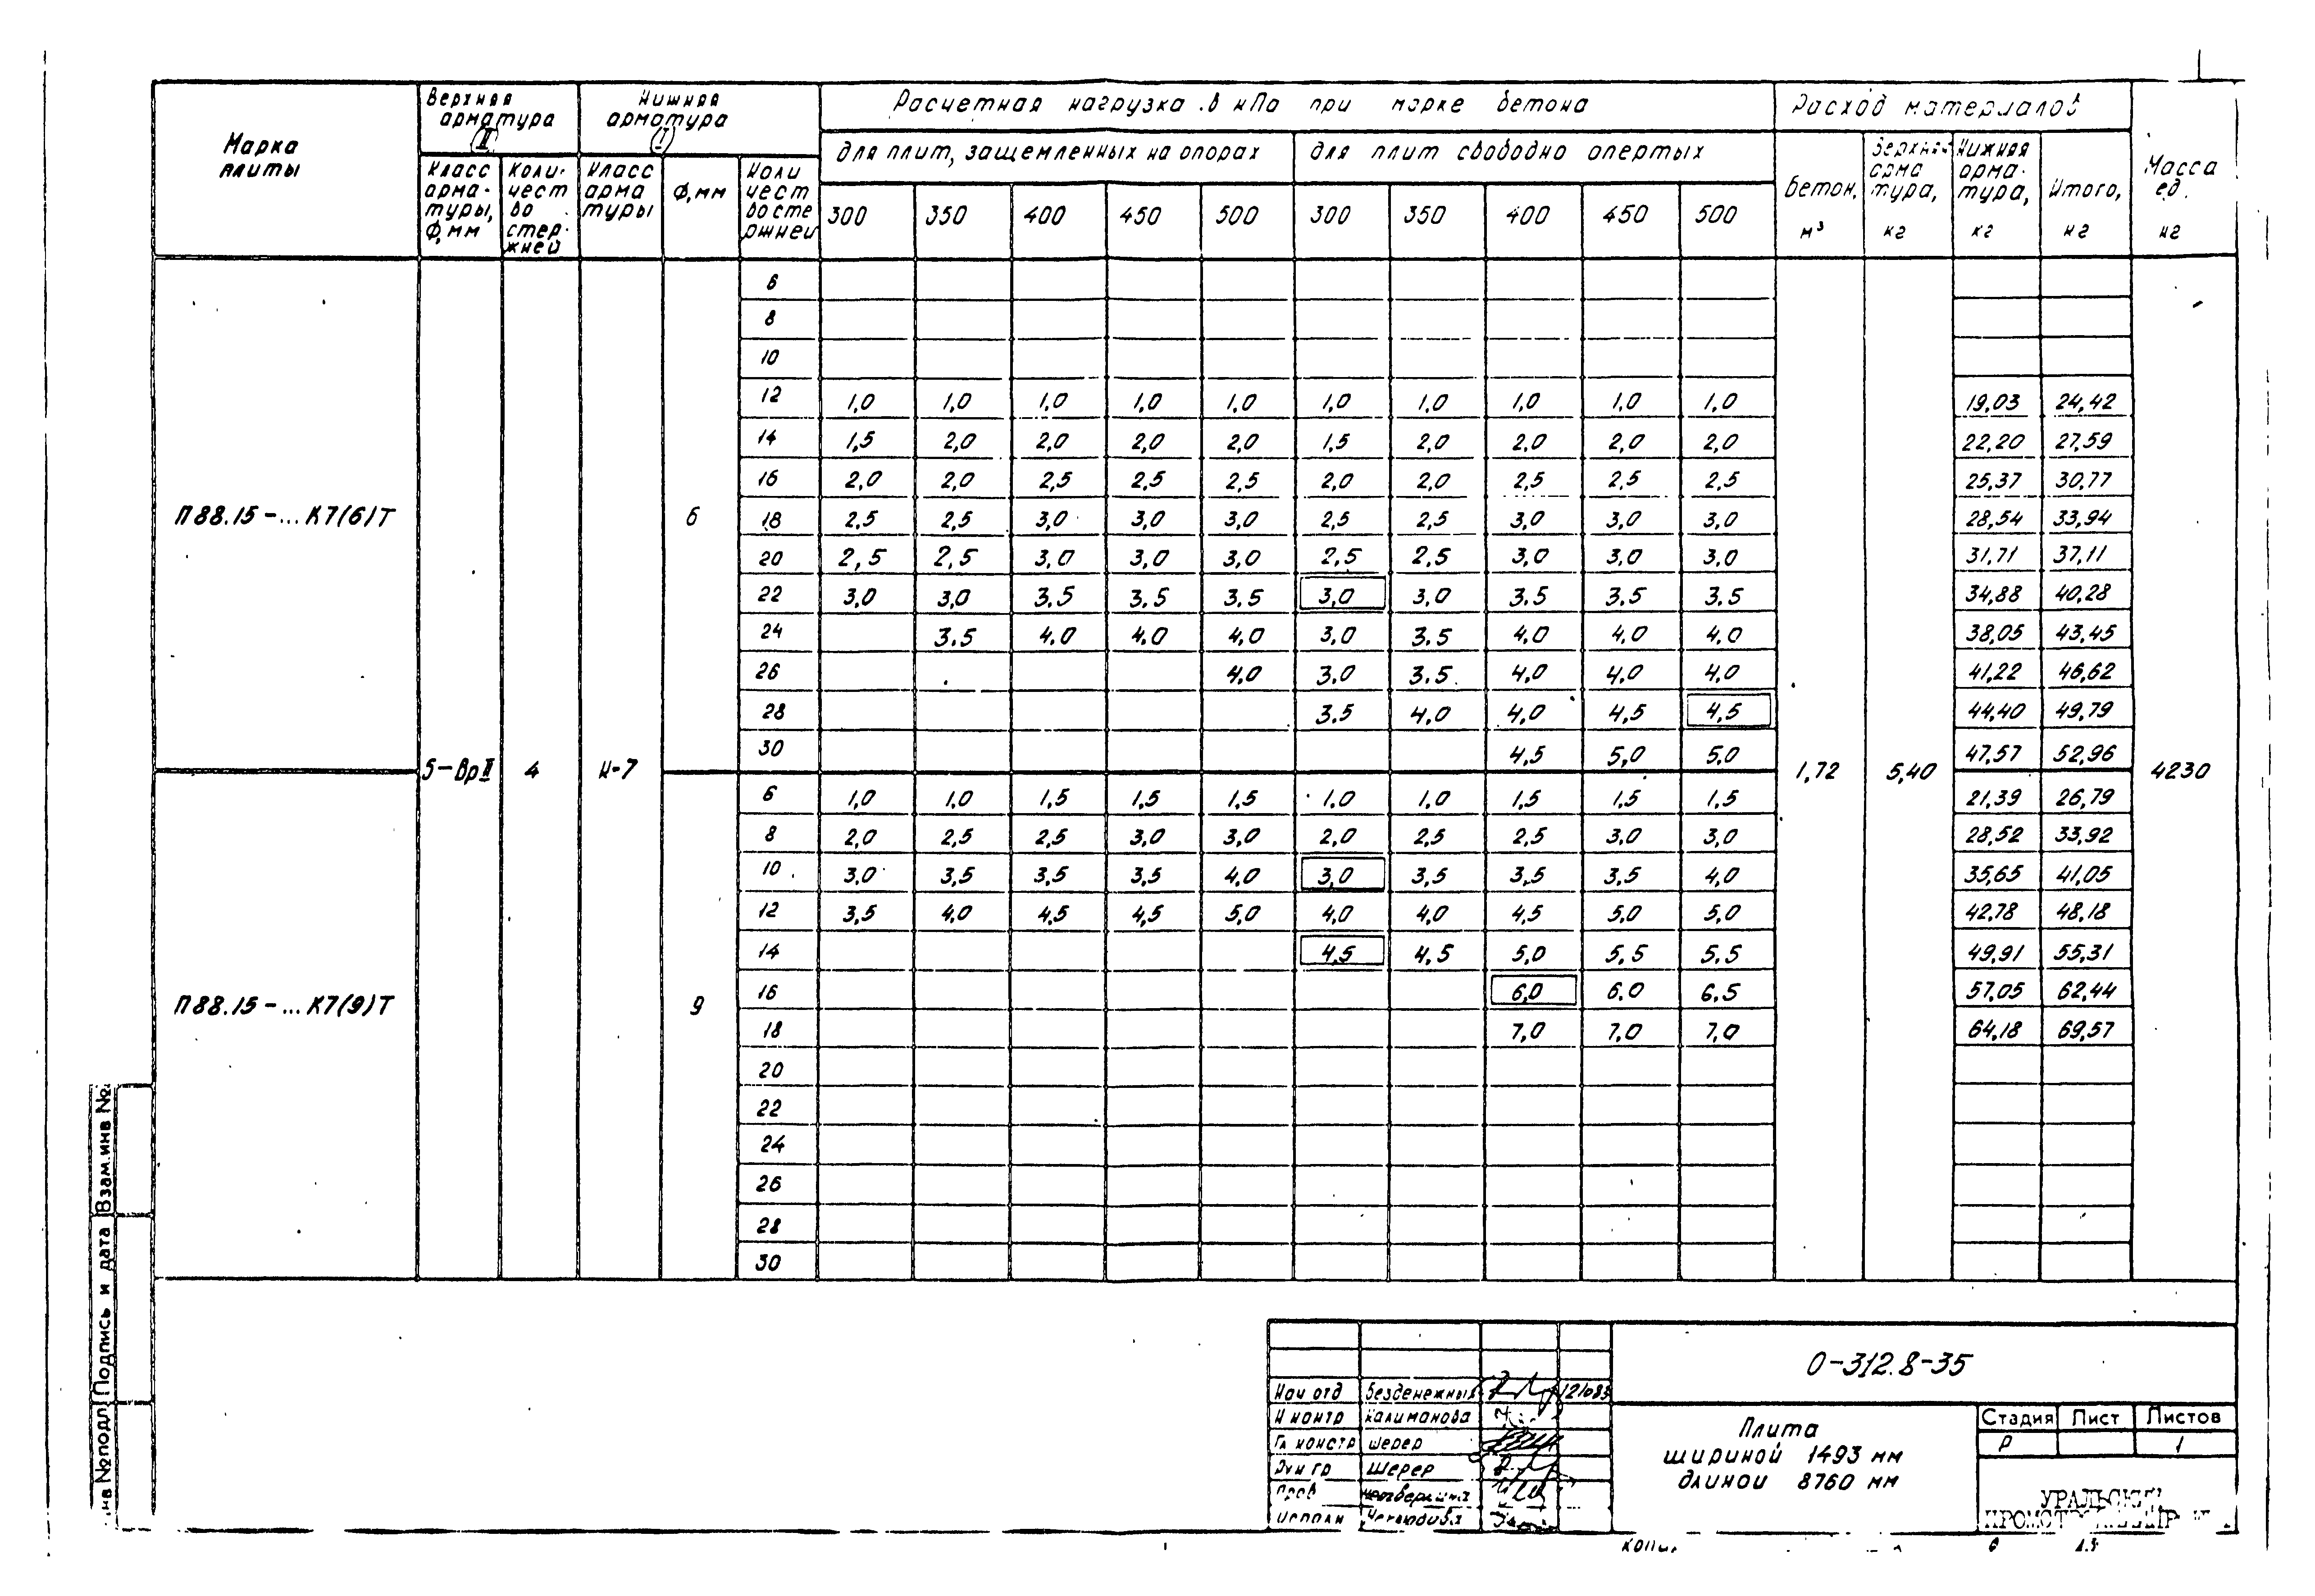 Марка плиты | Верхняя арматура (II) | Нижняя арматура (I) | Расчетная нагрузка в кПа при марке бетона | Расход материалов | Масса ед. кг
для плит, защемленных на опорах | для плит свободно опертых
Класс арма-туры, Ф,мм | Коли-чест во стер-жней | Класс арма туры | Ф,мм | Коли чест во сте ржней | 300 | 350 | 400 | 450 | 500 | 300 | 350 | 400 | 450 | 500 | Бетон, м³ | Верхняя арма тура, кг | Нижняя арма-тура, кг | Итого, кг
6
8
10
12 1,0 1,0 1,0 1,0 1,0 1,0 1,0 1,0 1,0 1,0 19,03 24,42
14 1,5 2,0 2,0 2,0 2,0 1,5 2,0 2,0 2,0 2,0 22,20 27,59
16 2,0 2,0 2,5 2,5 2,5 2,0 2,0 2,5 2,5 2,5 25,37 30,77
П88.15-...К7(6)Т 6 18 2,5 2,5 3,0 3,0 3,0 2,5 2,5 3,0 3,0 3,0 28,54 33,94
20 2,5 2,5 3,0 3,0 3,0 2,5 2,5 3,0 3,0 3,0 31,71 37,11
22 3,0 3,0 3,5 3,5 3,5 3,0 3,0 3.5 3.5 3.5 34,88 40,28
24 3.5 4.0 4.0 4,0 3,0 3.5 4,0 4,0 4,0 38,05 43,45
26 4,0 3,0 3.5 4,0 4,0 4,0 41,22 46,62
28 3.5 4,0 4,0 4,5 4,5 44,40 49,79
30 4,5 5,0 5,0 47,57 52,96
5-ВрII 4 К-7 1,72 5,40 4230
6 1,0 1,0 1,5 1,5 1,5 1,0 1,0 1,5 1,5 1,5 21,39 26,79
8 2,0 2,5 2,5 3,0 3,0 2,0 2,5 2,5 3,0 3,0 28,52 33,92
10 3,0 3,5 3,5 3,5 4,0 3,0 3,5 3,5 3,5 4,0 35,65 41,05
12 3,5 4,0 4,5 4,5 5,0 4,0 4,0 4,5 5,0 5,0 42,78 48,18
14 4,5 4,5 5,0 5,5 5.5 49,91 55,31
П88.15-...К7(9)Т 9 16 6,0 6,0 6.5 57,05 62,44
18 7,0 7,0 7,0 64,18 69,57
20
22
24
26
28
30
Инв №подл Подпись и дата Взам.инв №
О-312.8-35
Нач отд Безденежных
Н контр Калиманова
Гл констр Шерер
Рук гр Шерер
Пров
Исполн
Плита
шириной 1493 мм
длиной 8760 мм
Стадия Лист Листов
Р 1
УРАЛЬСКИЙ